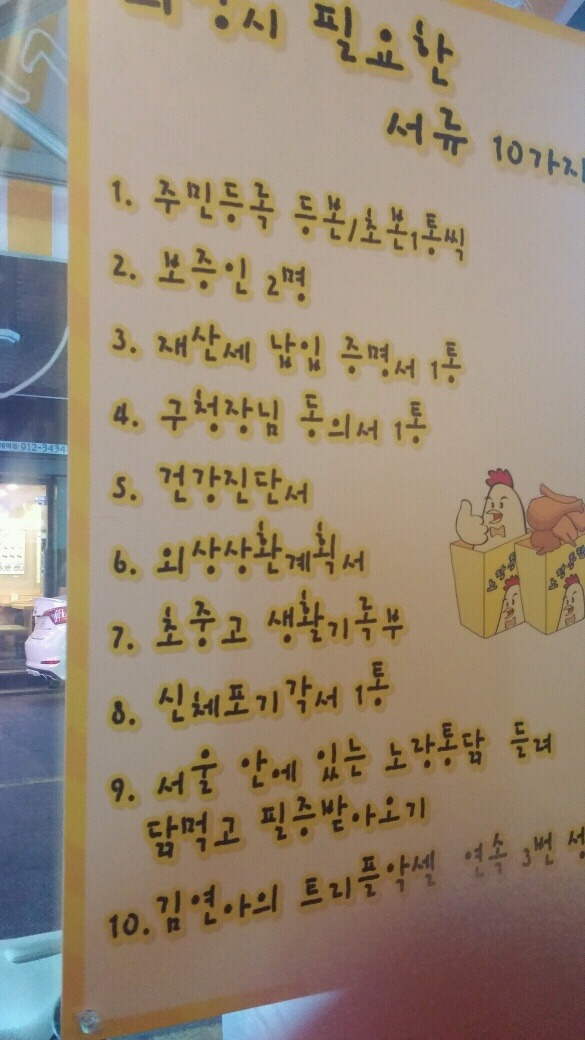 외상시 필요한
서류 10가지
1. 주민등록 등본/초본1통씩
2. 보증인 2명
3. 재산세 납입 증명서 1통
4. 구청장님 동의서 1통
5. 건강진단서
6. 외상상환계획서
7. 초중고 생활기록부
8. 신체포기각서 1통
9. 서울 안에 있는 노랑통닭 들려
닭먹고 필증받아오기
10. 김연아의 트리플악셀 연속 3번
912-3434